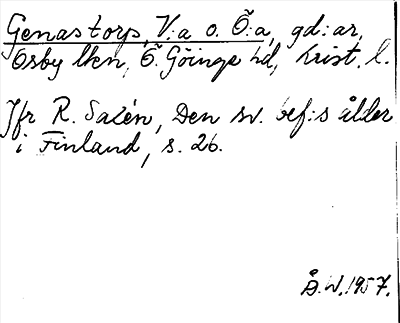 Genastorp, V:a o. Ö:a, gd:ar,
Osby skn, Ö. Göinge hd, Krist. l.
Jfr R. Saxén, Den sv. bef:s ålder
i Finland, s. 26.
Å.W. 1957.